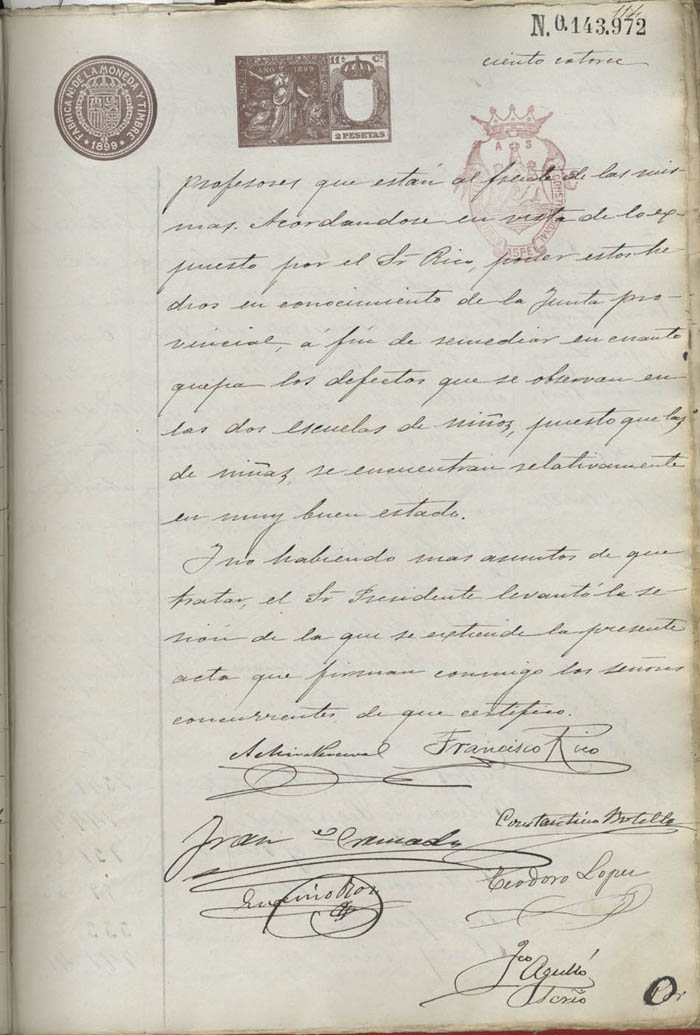 114
N. 0.143.972
ciento catorce
FABRICA Nal. DE LA MONEDA Y TIMBRE
1899
1899
11ª Cª
2 PESETAS
A S
CONSTITUCIONAL
ASPE
profesores que están al frente de las mis-
mas. Acordandose en vista de lo ex-
puesto por el Sr Rico, poner estos he-
chos en conocimiento de la Junta pro-
vincial, á fin de remediar en cuanto
quepa los defectos que se observan en
las dos escuelas de niños, puesto que las
de niñas, se encuentran relativamente
en muy buen estado.
Y no habiendo mas asuntos de que
tratar, el Sr Presidente levantó la se-
sión de la que se extiende la presente
acta que firman conmigo los señores
concurrentes, de que certifico.
Francisco Rico
Constantino Botella
Fran co Cremades
Teodoro Lopez
Fco Agulló
Srio